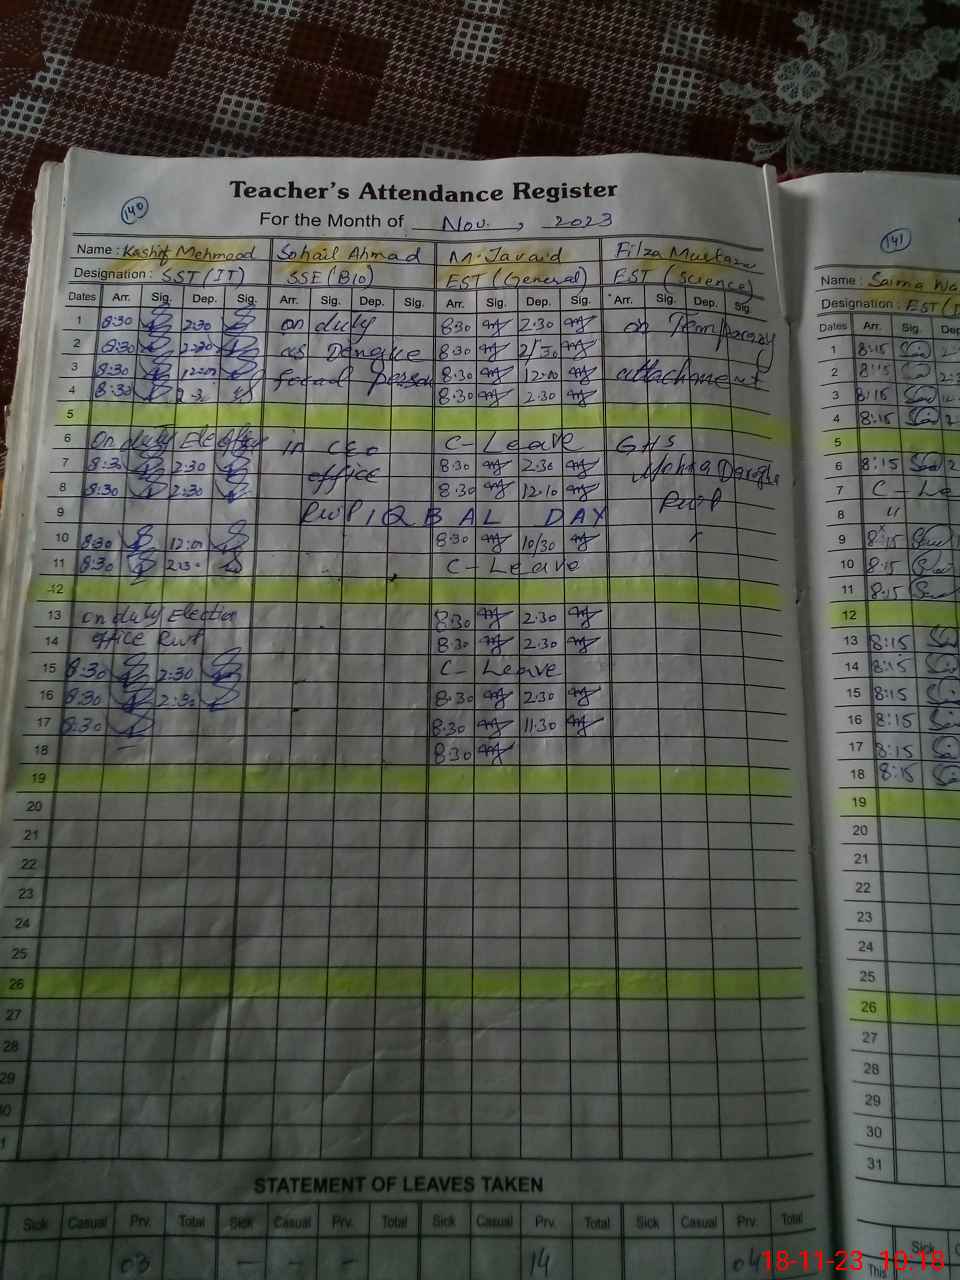 Teacher's Attendance Register
140
For the Month of Nov. , 2023
Name : Kashif Mehmood Sohail Ahmad M. Javaid Filza Mustafa
Designation : SST (IT) SSE (Bio) EST (General) EST (Science)
Dates Arr. Sig. Dep. Sig. Arr. Sig. Dep. Sig. Arr. Sig. Dep. Sig. Arr. Sig. Dep. Sig.
1 8:30 2:30 on duty 8:30 2:30 on Temporary
2 8:30 2:30 as Dengue 8:30 2:30
3 8:30 12:00 focal person 8:30 12:00 attachment
4 8:30 8:30 2:30
5
6 On duty Ele office in CEO C-Leave GHS
7 8:30 2:30 office 8:30 2:30 Mohra Darogha
8 8:30 2:30 8:30 12:10 Rwp
9 Rwp IQBAL DAY
10 8:30 12:00 8:30 10/30
11 8:30 2:30 C-Leave
12
13 on duty Election 8:30 2:30
14 office Rwp 8:30 2:30
15 8:30 2:30 C-Leave
16 8:30 2:30 8:30 2:30
17 8:30 8:30 11:30
18 8:30
19
20
21
22
23
24
25
26
27
28
29
STATEMENT OF LEAVES TAKEN
Sick Casual Prv. Total Sick Casual Prv. Total Sick Casual Prv. Total Sick Casual Prv. Total
03 - - - 14 04
141
Name : Saima
Designation : EST
Dates Arr. Sig. Dep
1 8:15
2 8:15
3 8:15
4 8:15
5
6 8:15
7 C-Le
8 "
9 8:15
10 8:15
11 8:15
12
13 8:15
14 8:15
15 8:15
16 8:15
17 8:15
18 8:15
19
20
21
22
23
24
25
26
27
28
29
30
31
Sick
This
18-11-23 10:18